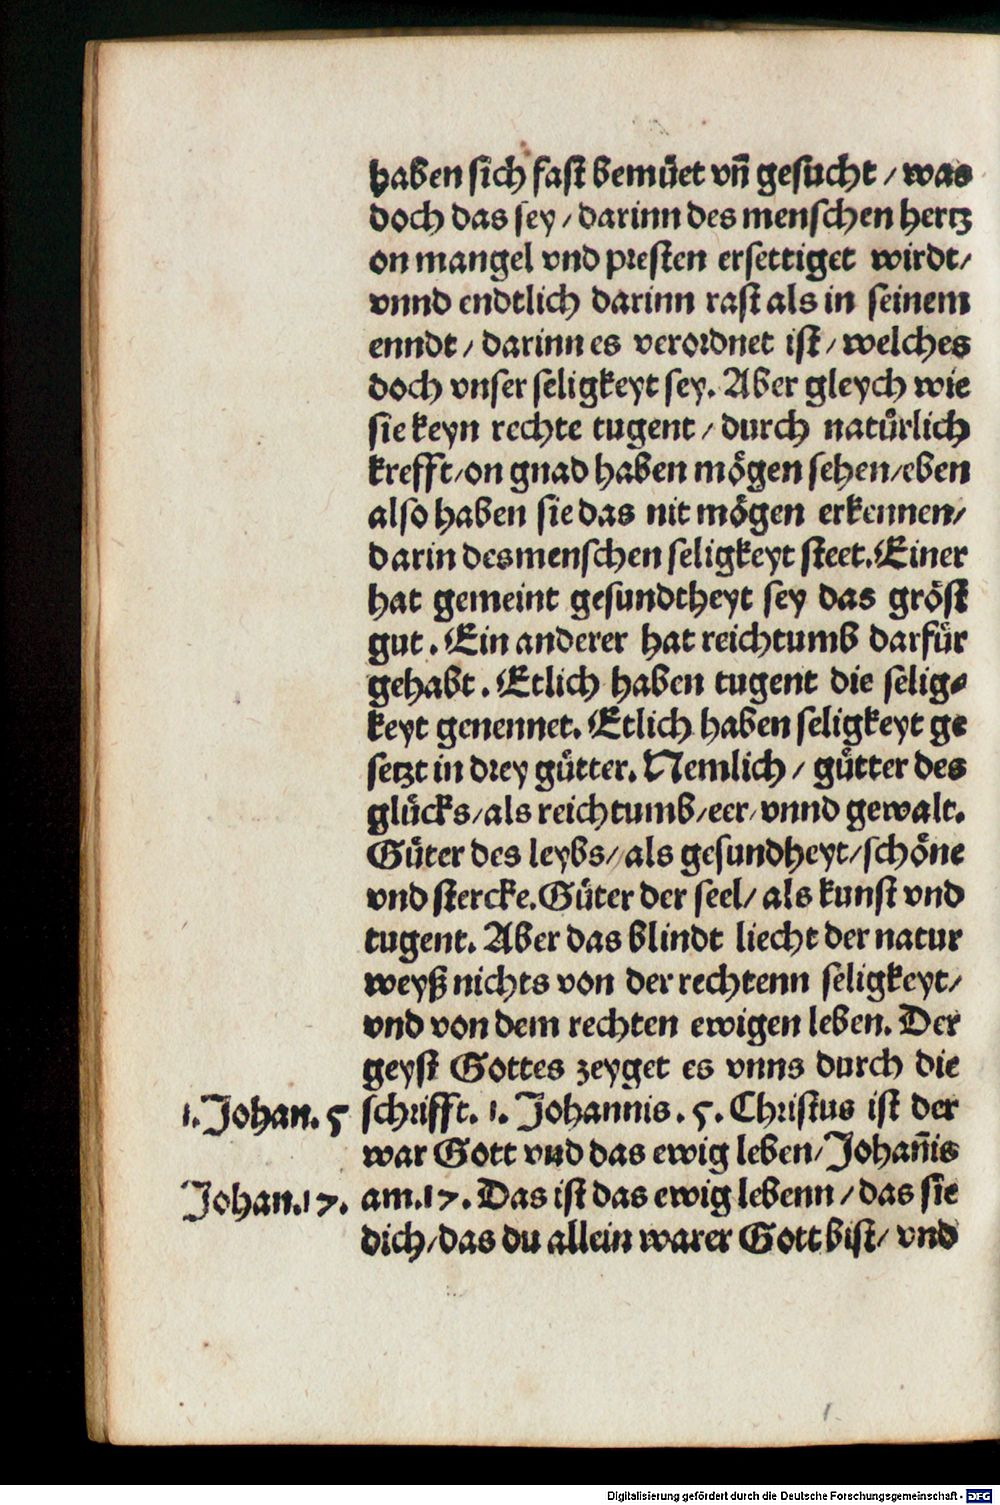 haben sich fast bemuͤet vn̄ gesucht / was
doch das sey / darinn des menschen hertz
on mangel vnd presten ersettiget wirdt /
vnnd endtlich darinn rast als in seinem
enndt / darinn es verordnet ist / welches
doch vnser seligkeyt sey. Aber gleych wie
sie keyn rechte tugent / durch natuͤrlich
krefft / on gnad haben moͤgen sehen / eben
also haben sie das nit moͤgen erkennen /
darin des menschen seligkeyt steet. Einer
hat gemeint gesundtheyt sey das groͤst
gut. Ein anderer hat reichtumb darfuͤr
gehabt. Etlich haben tugent die selig⸗
keyt genennet. Etlich haben seligkeyt ge
setzt in drey guͤtter. Nemlich / guͤtter des
gluͤcks / als reichtumb / eer / vnnd gewalt.
Guͤter des leybs / als gesundheyt / schoͤne
vnd stercke. Guͤter der seel / als kunst vnd
tugent. Aber das blindt liecht der natur
weyß nichts von der rechtenn seligkeyt /
vnd von dem rechten ewigen leben. Der
geyst Gottes zeyget es vnns durch die
1. Johan. 5 schrifft. 1. Johannis. 5. Christus ist der
war Gott vnd das ewig leben / Johan̄is
Johan. 17. am. 17. Das ist das ewig lebenn / das sie
dich / das du allein warer Gott bist / vnd
Digitalisierung gefördert durch die Deutsche Forschungsgemeinschaft - DFG